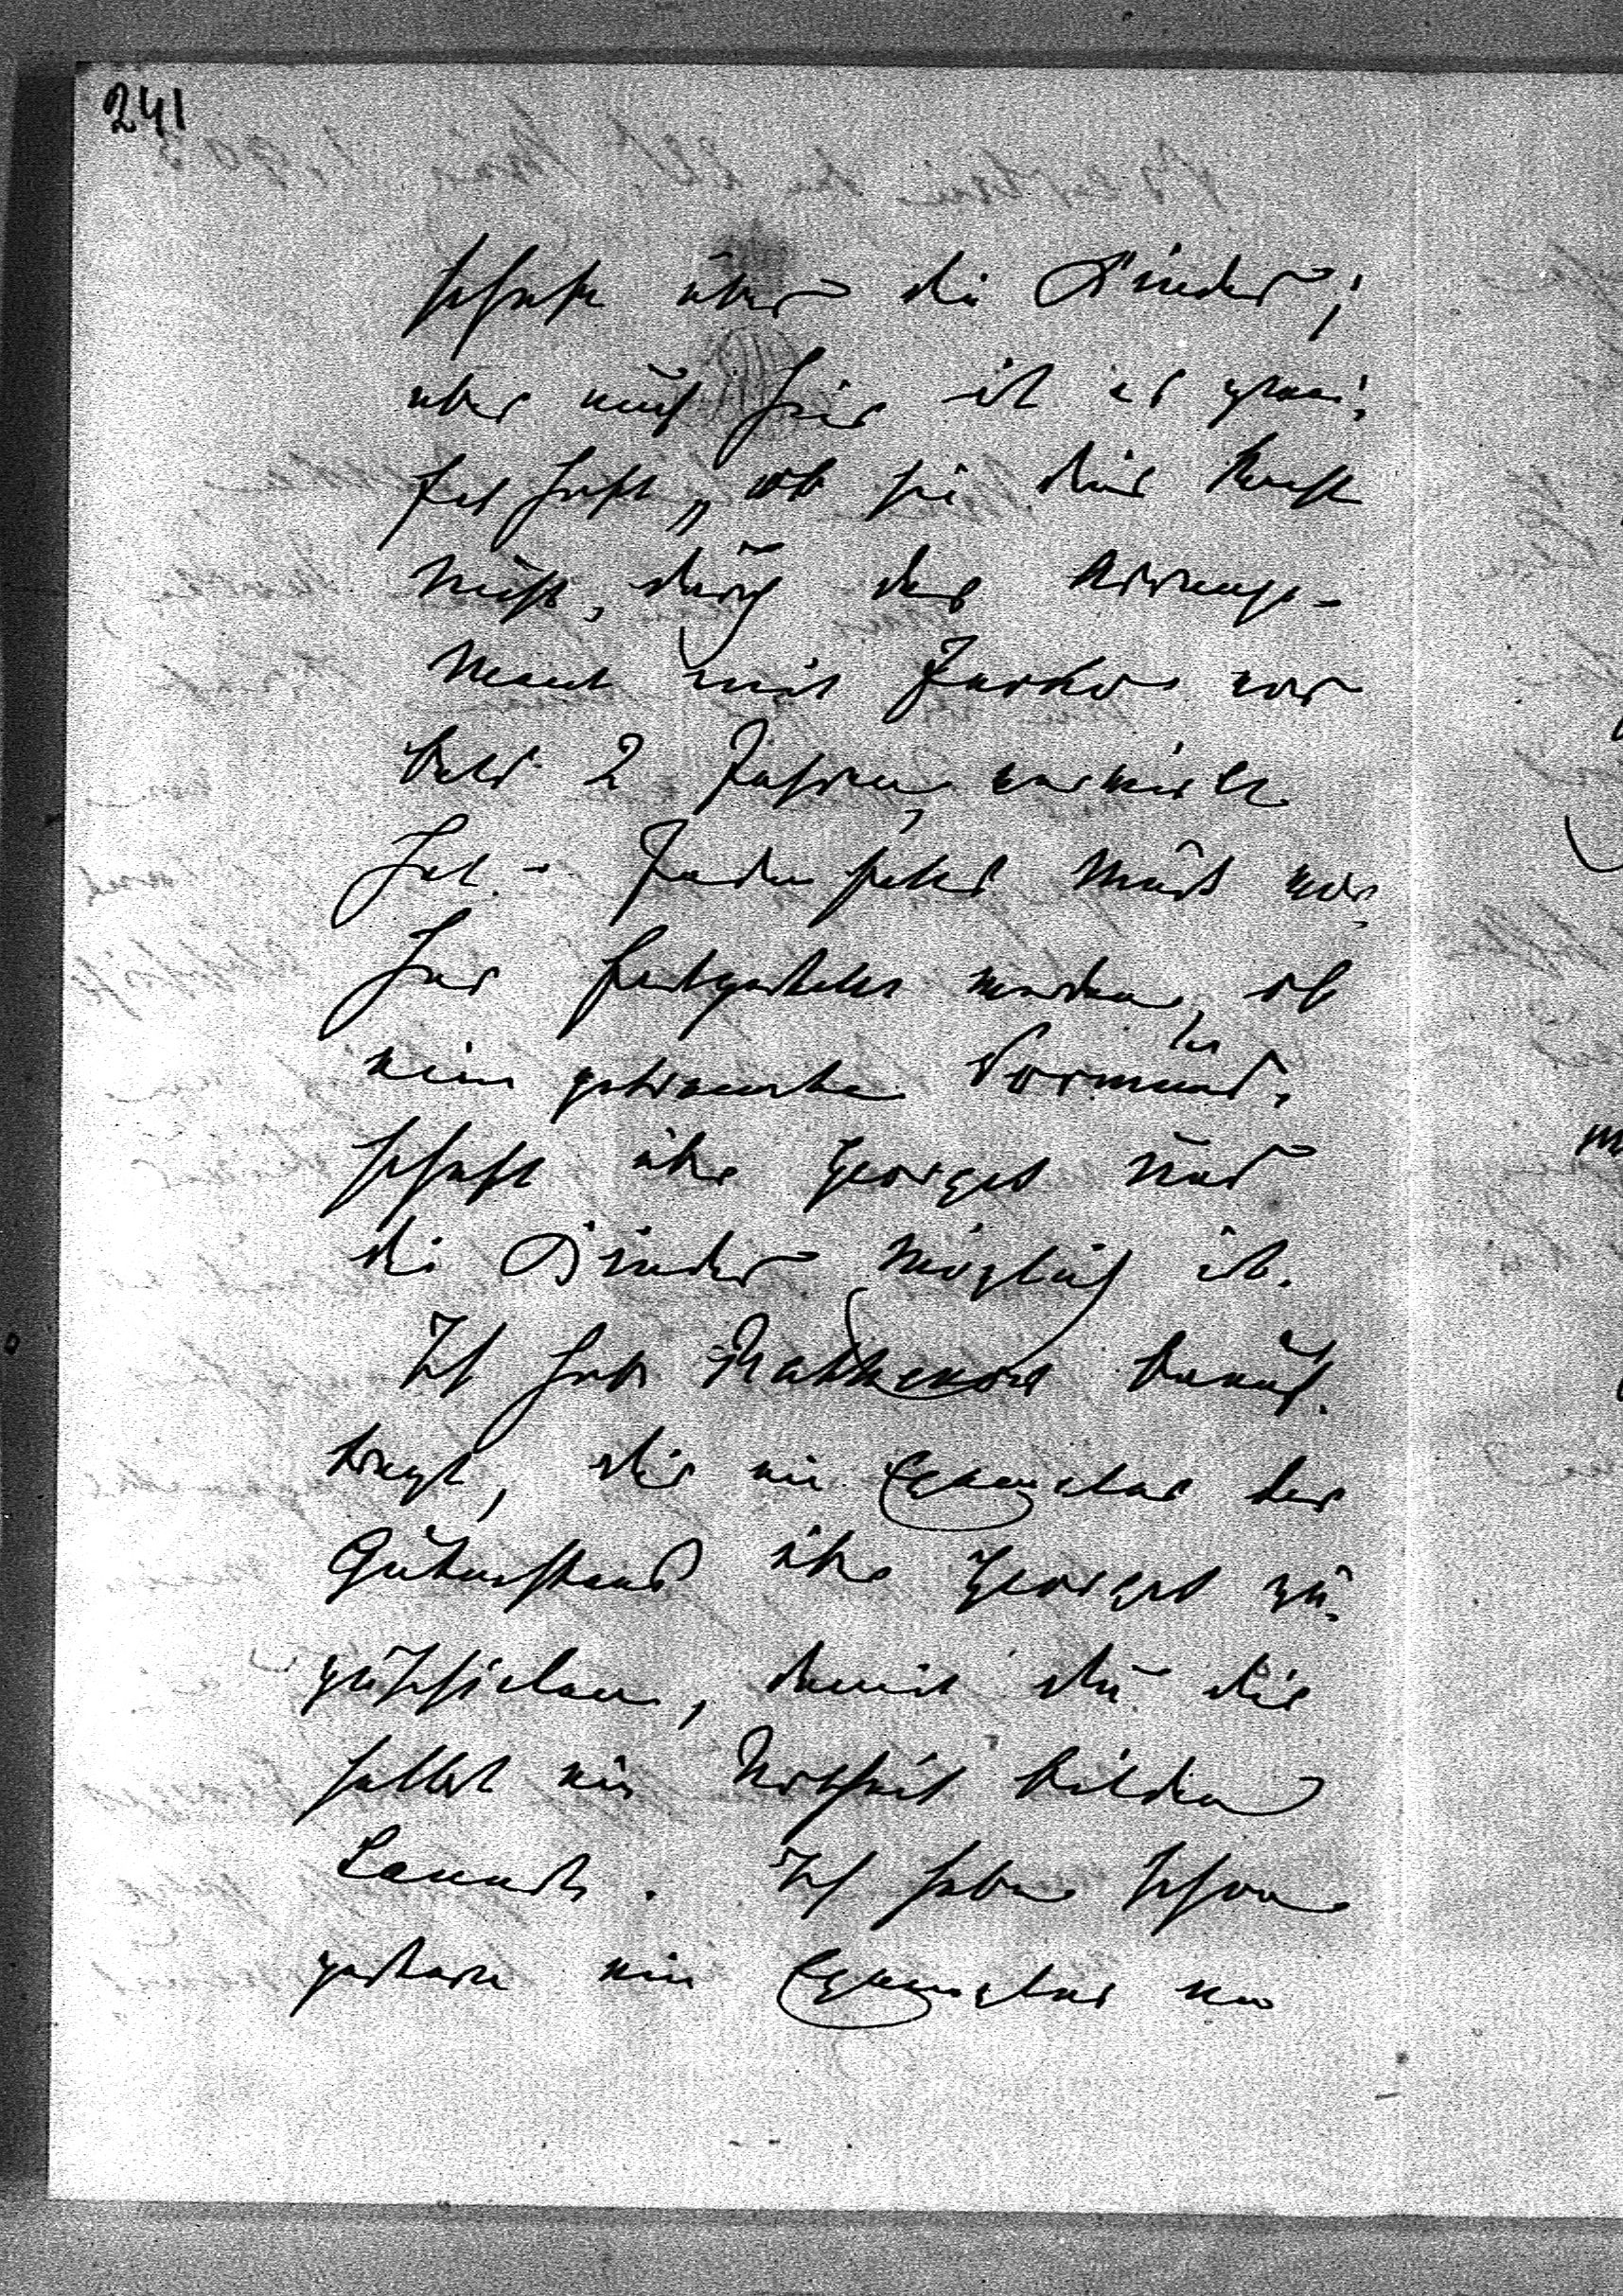 241
schaft über die Kinder;
aber auch hier ist es zwei-
felhaft, ob sie dies Recht
nicht, durch das Arrange-
ment mit Jankos vor
bald 2 Jahren, verwirkt
hat. - Jedenfalls muss vor-
her festgestellt werden, ob
eine getrennte Vormund-
schaft über Georges und
die Kinder möglich ist.
Ich habe Rathenow beauf-
tragt, Dir ein Exemplar der
Gutachten über Georges zu-
zuschicken, damit Du Dir
selbst ein Urtheil bilden
kannst. Ich habe schon
gestern ein Exemplar an